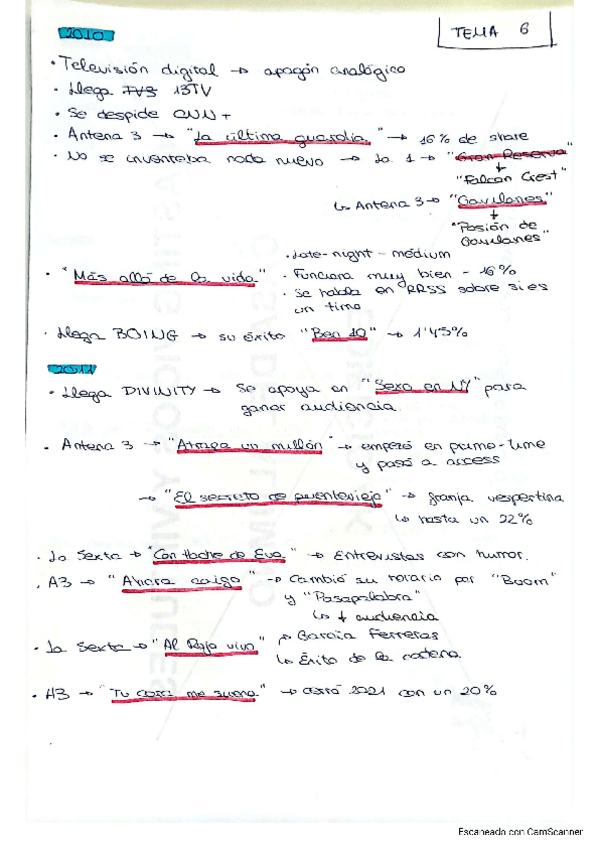 2010
TEMA 6
· Televisión digital → apagón analógico
· Llega TV3 13TV
· Se despide CNN+
· Antena 3 → "La última guardia" → 16% de share
· No se inventaba nada nuevo → La 1 → "Gran Reserva"
"Falcon Crest"
↳ Antena 3 → "Gavilanes"
"Pasión de Gavilanes"
· Late-night - médium
· "Más allá de la vida" · Funciona muy bien - 16%
· Se habla en RRSS sobre si es
un timo
· Llega BOING → su éxito "Ben 10" → 1'45%
2011
· Llega DIVINITY → Se apoya en "Sexo en NY" para
ganar audiencia.
· Antena 3 → "Atrapa un millón" → empezó en prime-time
y pasó a access
→ "El secreto de puenteviejo" → franja vespertina
↳ hasta un 22%
· La Sexta → "Con Hache de Eva" → Entrevistas con humor.
· A3 → "Ahora caigo" → Cambió su horario por "Boom"
y "Pasapalabra"
↳ ↓ audiencia
· La Sexta → "Al Rojo vivo" → García Ferreras
↳ Éxito de la cadena.
· A3 → "Tu cara me suena" → cerró 2021 con un 20%
Escaneado con CamScanner